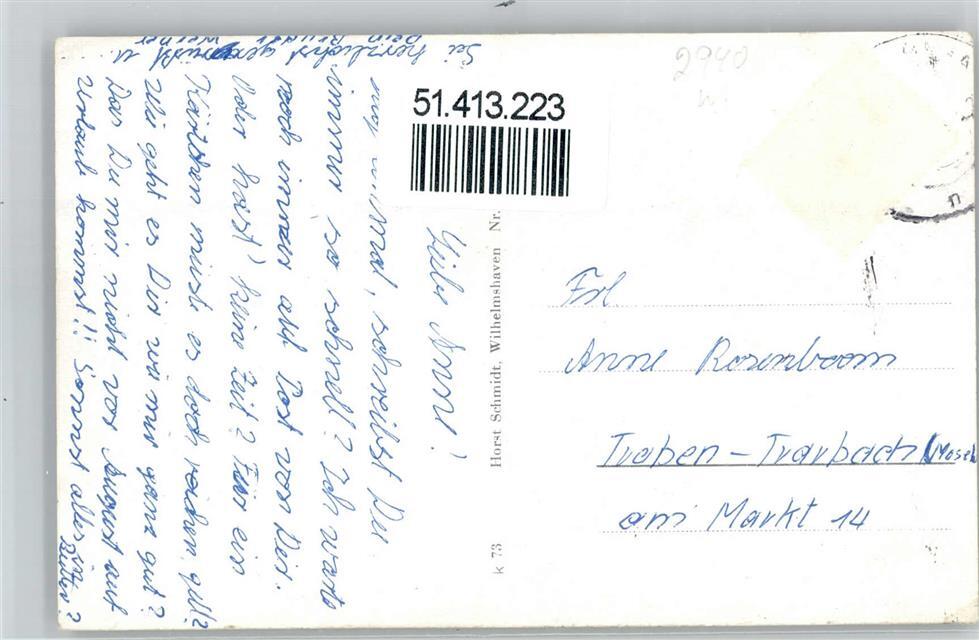 51.413.223
2940
Liebe Anne!
mal, schreibst Du
immer so schnell? Ich warte
noch immer auf Post von Dir.
Oder hast' keine Zeit? Für ein
Kärtchen müsst es doch reichen, gell?
Wie geht es Dir wie mir ganz gut?
Das Du mir nicht vor August auf
Urlaub kommst!! Sonst alles in
Butter?
Sei herzlichst gegrüßt v.
Dein Bruder
Werner
Horst Schmidt, Wilhelmshaven Nr.
k 73
Frl
Anne Rosenboom
Traben-Trarbach (Mosel
am Markt 14